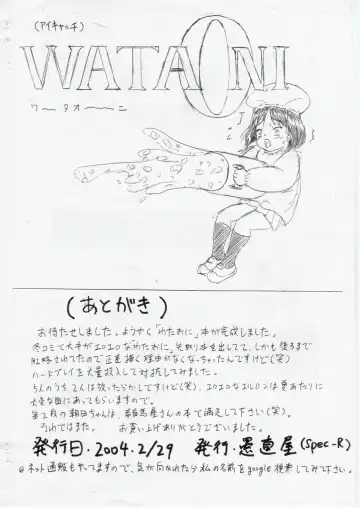 (アイキャッチ)
WATAONI
ワ〜タオ〜〜ニ
(あとがき)
お待たせしました。ようやく「わたおに」本が完成しました。
冬コミで大手がエロエロなわたおに先取り本を出してて、しかも堕ろまで
されてたので正直描く理由がなくなっちゃったんですけど(笑)
ハードプレイを大量投入して対抗してみました。
5人のうち、2人は放ったらかしですけど(笑)、エロエロなエルハンは
大変な目にあってもらいますので。
第2段の朝田ちゃんは、本で満足して下さい(笑)。
それではまた。 お買い上げありがとうございました。
発行日・2004.2/29 発行・愚直屋(Spec-R)
@ネット通販もやってますので、気が向かれたら私の名前をgoogle検索してみて下さい。